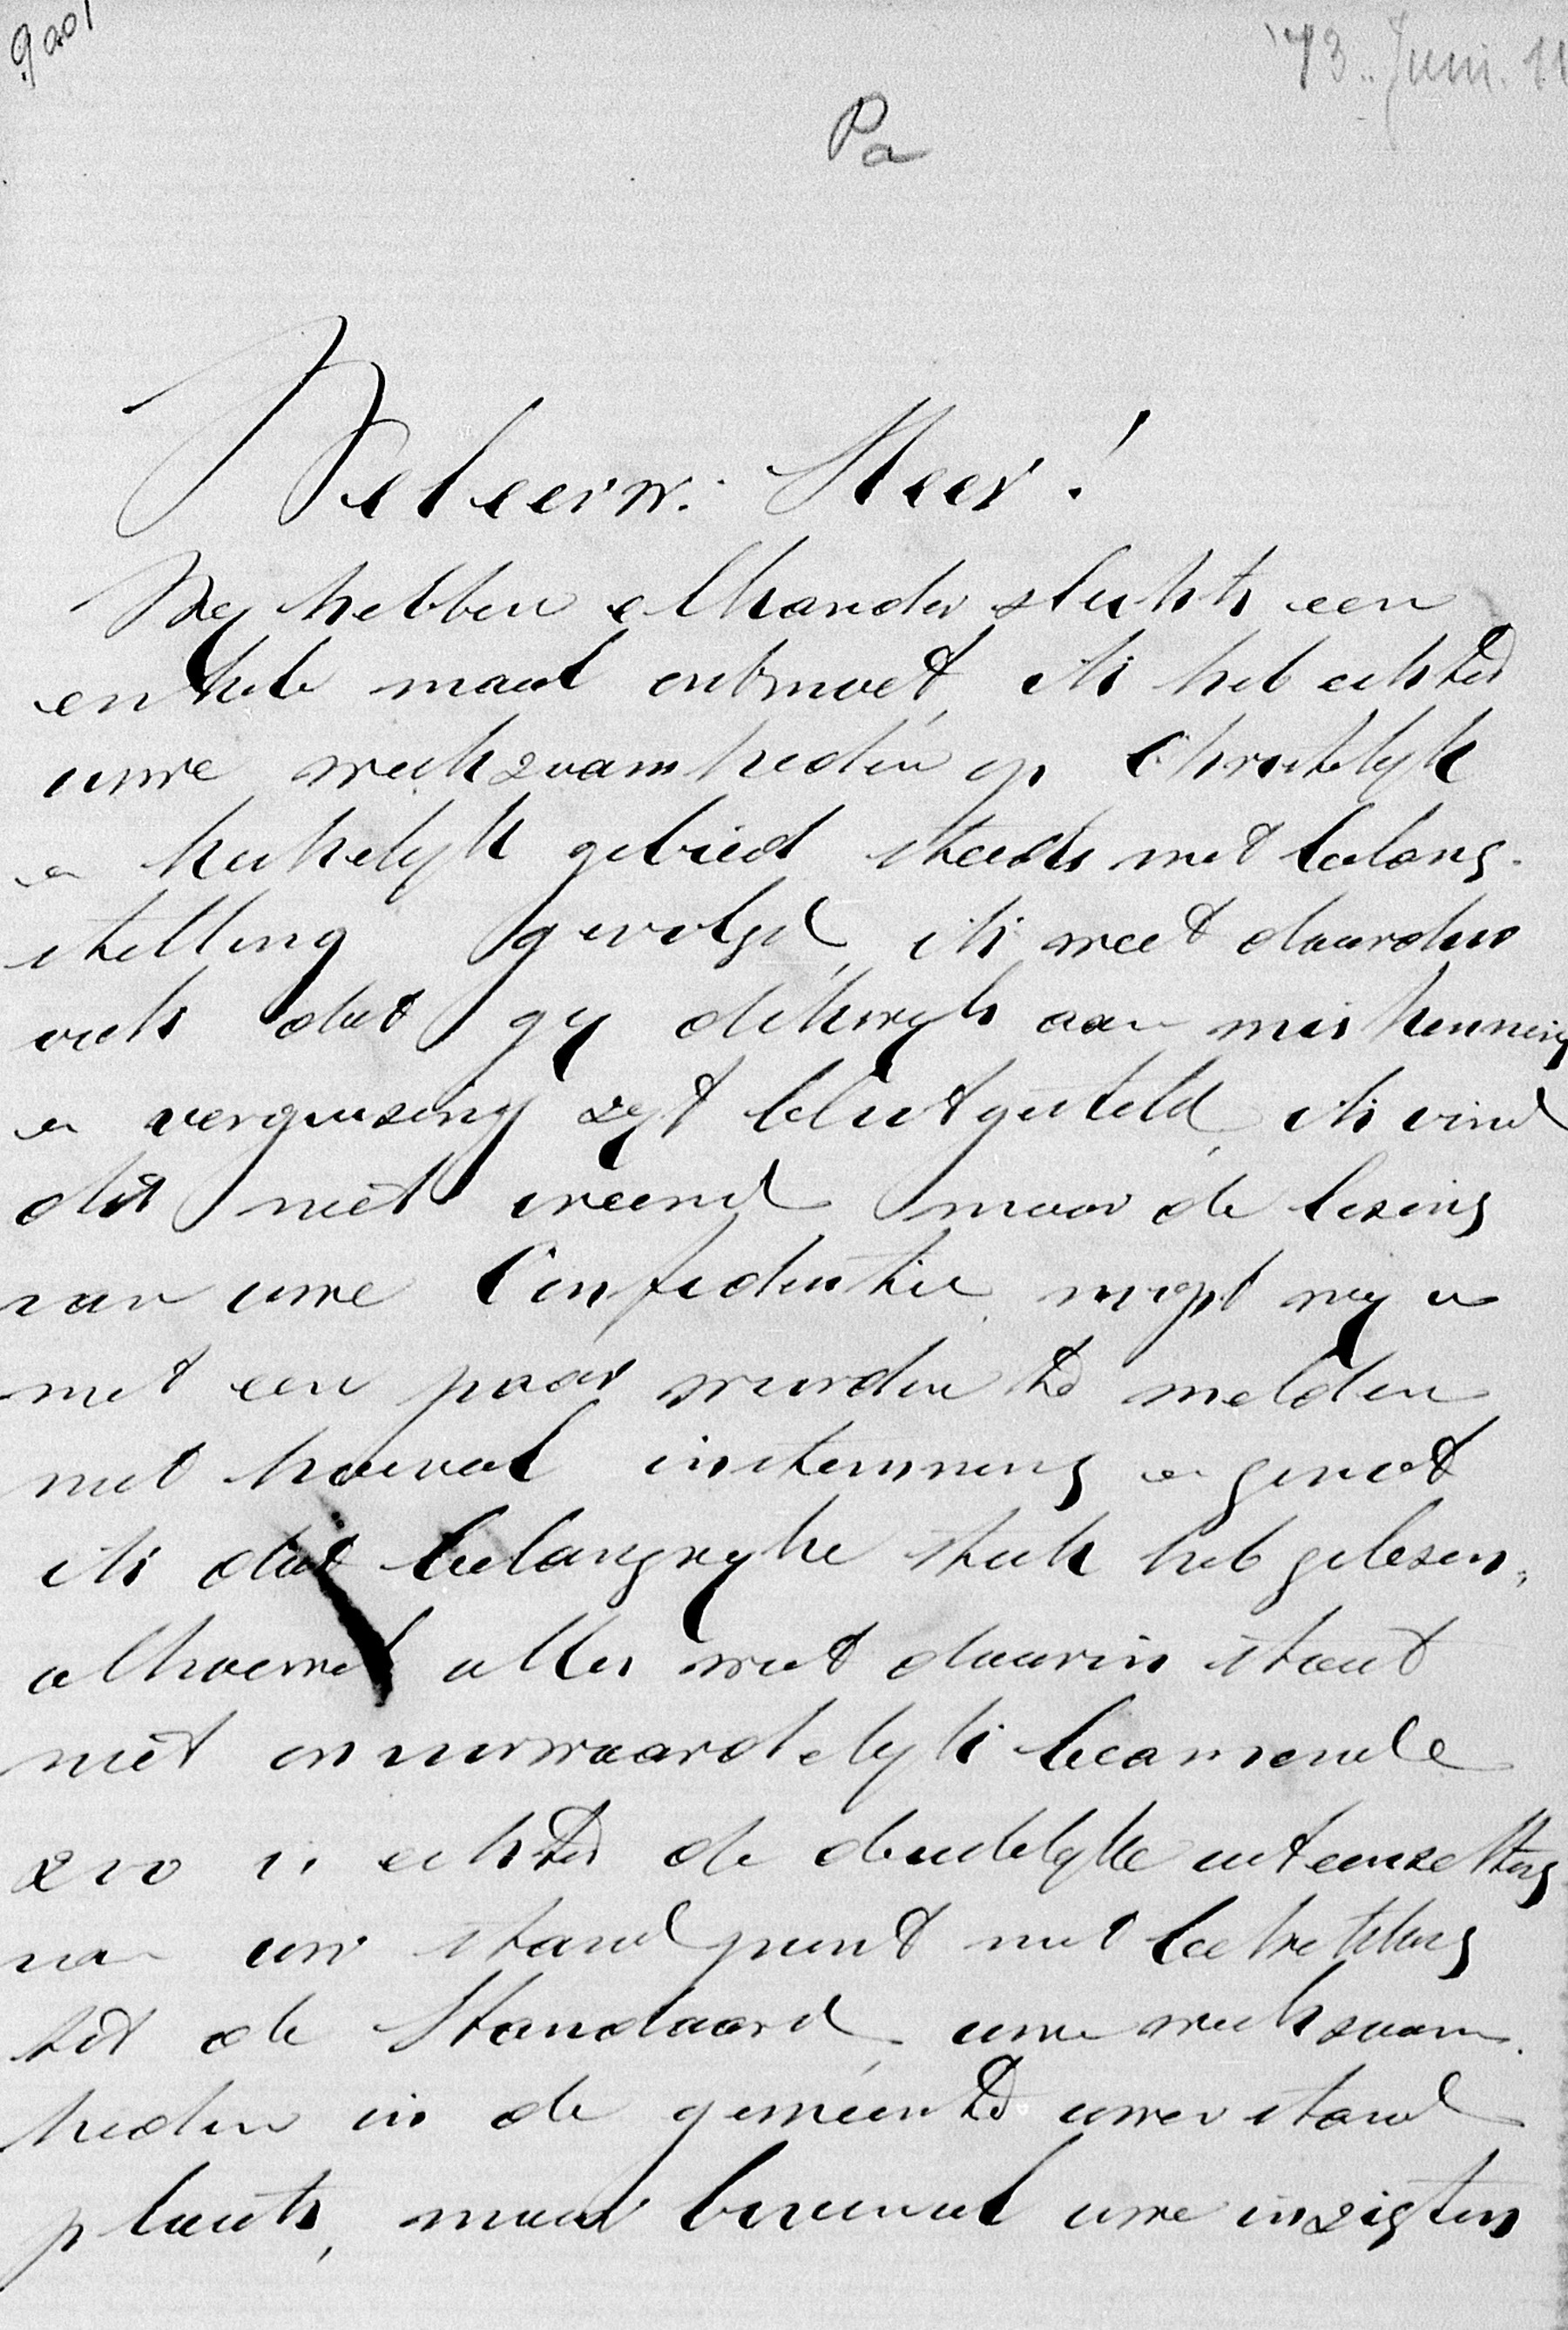 '73. Juni. 11
Pa
WelEerw: Heer!
Wij hebben elkander slechts een
enkele maal ontmoet, ik heb echter
uwe werkzaamheden op Christelijk
en kerkelijk gebied steeds met belang-
stelling gevolgd, ik weet daardoor
ook dat gij dikwijls aan miskenning
en verguizing zijt blootgesteld, ik vind
dit niet vreemd maar de lezing
van uwe Confidentie, noopt mij u
met een paar woorden te melden
met hoeveel instemming en genot
ik dat belangrijke stuk heb gelezen,
alhoewel alles wat daarin staat
niet onvoorwaardelijk beamende
zoo is echter de duidelijke uiteenzetting
van uw standpunt met betrekking
tot de Standaard, uwe werkzaam-
heden in de gemeente uwer stand
plaats, maar bovenal uwe inzigten